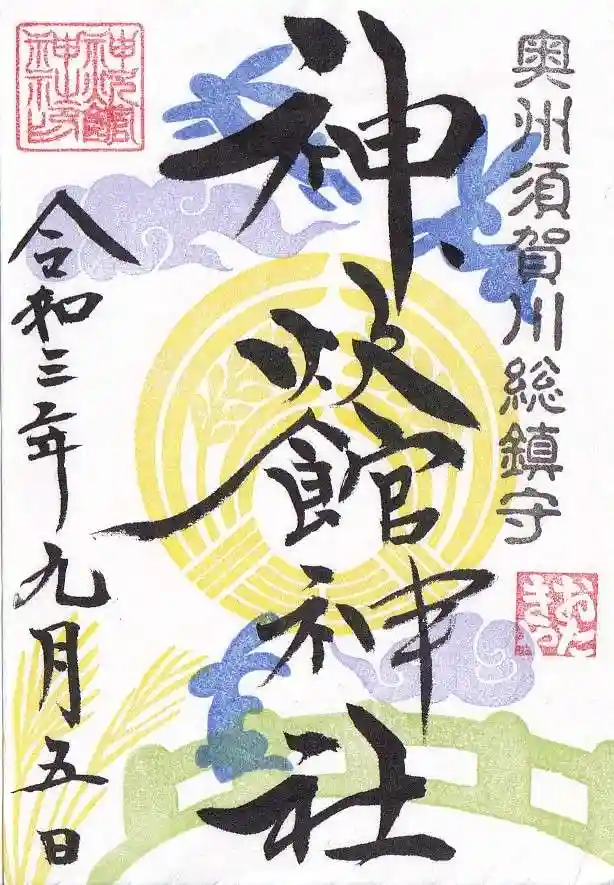 奥州須賀川総鎮守
神炊館神社
令和三年九月五日
神炊館
神社印
おたきや